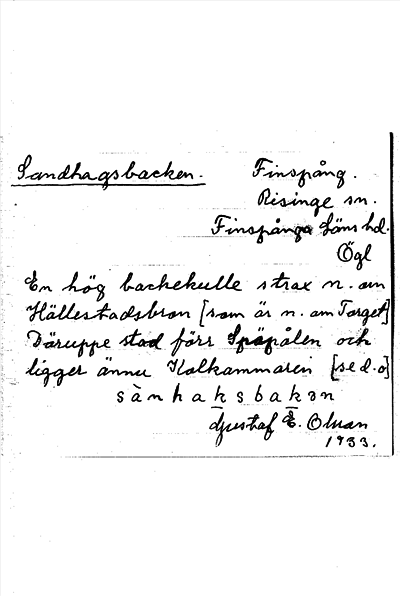 Sandhagsbacken. Finspång.
Risinge sn.
Finspånga läns hd.
Ögl
En hög backekulle strax n. om
Hällestadsbron [som är n. om Torget]
Däruppe stod förr Spöpålen och
ligger ännu Kolkammaren [se d.o]
sànhaksbakən
Gustaf E. Olsson
1933.